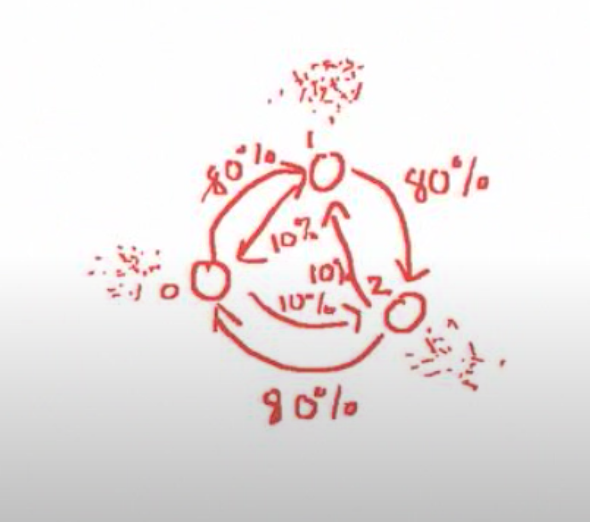 1
80%
80%
10%
0
10%
2
10%
80%